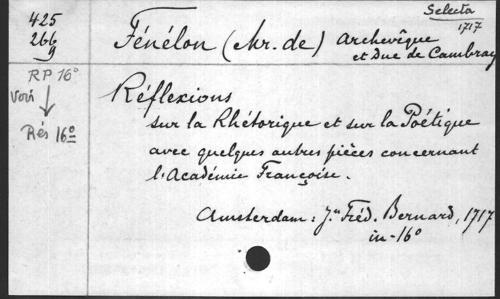 Selecta
1717
425
266
9
Fénélon (Mr. de) Archevêque
et Duc de Cambray
RP 16°
Voir
↓
Rés 16°
Réflexions
sur la Rhétorique et sur la Poétique
avec quelques autres pièces concernant
l'Académie Françoise.
Amsterdam: J.n Fréd. Bernard, 1717
in-16°